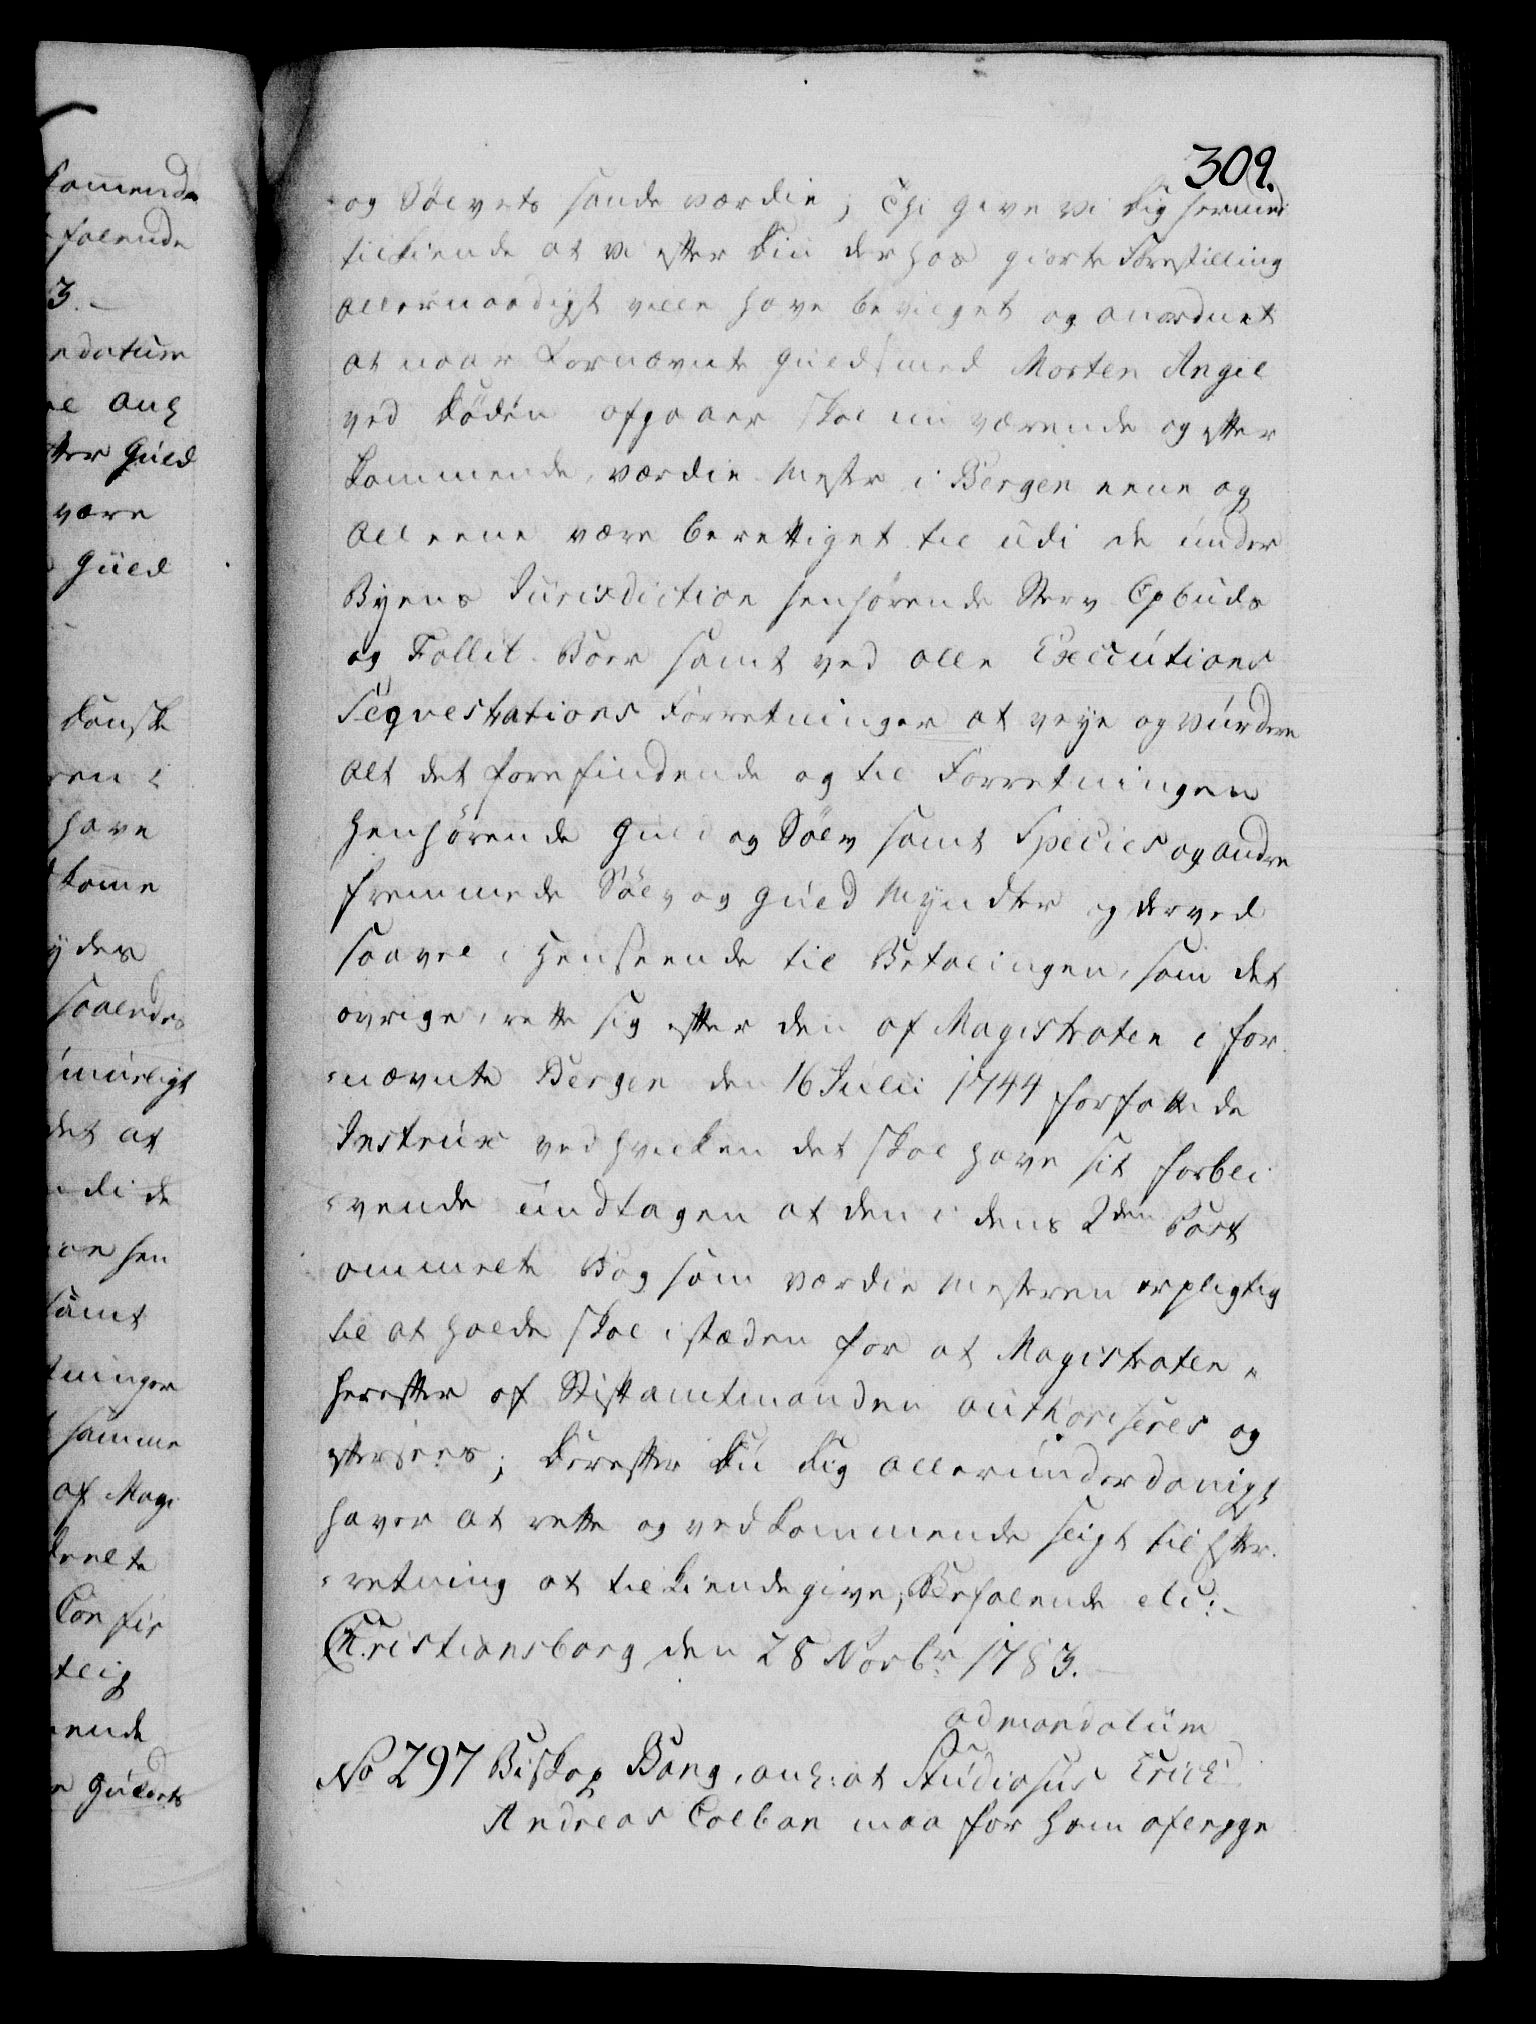 309.
og Sølvets sande værdie; Thi give vi Dig hermed
tilkiende at vi efter Din derhos giorte Forestilling
allernaadigst ville have bevilget og anordnet
at naar fornævnte Guldsmed Morten Angel
ved Døden afgaaer skal nu værende og efter
kommende værdie Mester i Bergen eene og
alleene være berettiget til udi de under
Byens Jurisdiction henhørende Sterv Opbuds
og Fallit Boer samt ved alle Executions
Seqvestrations Forretninger at veye og vurdere
alt det forefindende og til Forretningen
henhørende Guld og Sølv samt Species og andre
fremmede Sølv og Guld Myndter og derved
saavel i Henseende til Betalingen, som det
øvrige, rette sig efter den af Magistraten i for
-nævnte Bergen den 16 Julii 1744 forfattede
Instrux ved hvilken det skal have sit forbli
-vende undtagen at den i dens 2den Post
ommelte Bog som værdie Mesteren er pligtig
til at holde skal i stæden for at Magistraten
herefter af Stiftamtmanden authoriseres og
eftersees; Derefter Du Dig allerunderdanigst
haver at rette og vedkommende sligt til Efter-
-retning at tilkiendegive; Befalende etc:
Christiansborg den 28 Novbr 1783.
ad mandatum
No 297 Biskop Bang, anh: at Studiosus Erich
Andreas Colban maa for ham aflægge
kommende
falende
3.
ndatum
anh
Guld
være
Guld
danske
have
komme
saaledes
det at
samt
samme
af Magi
ende